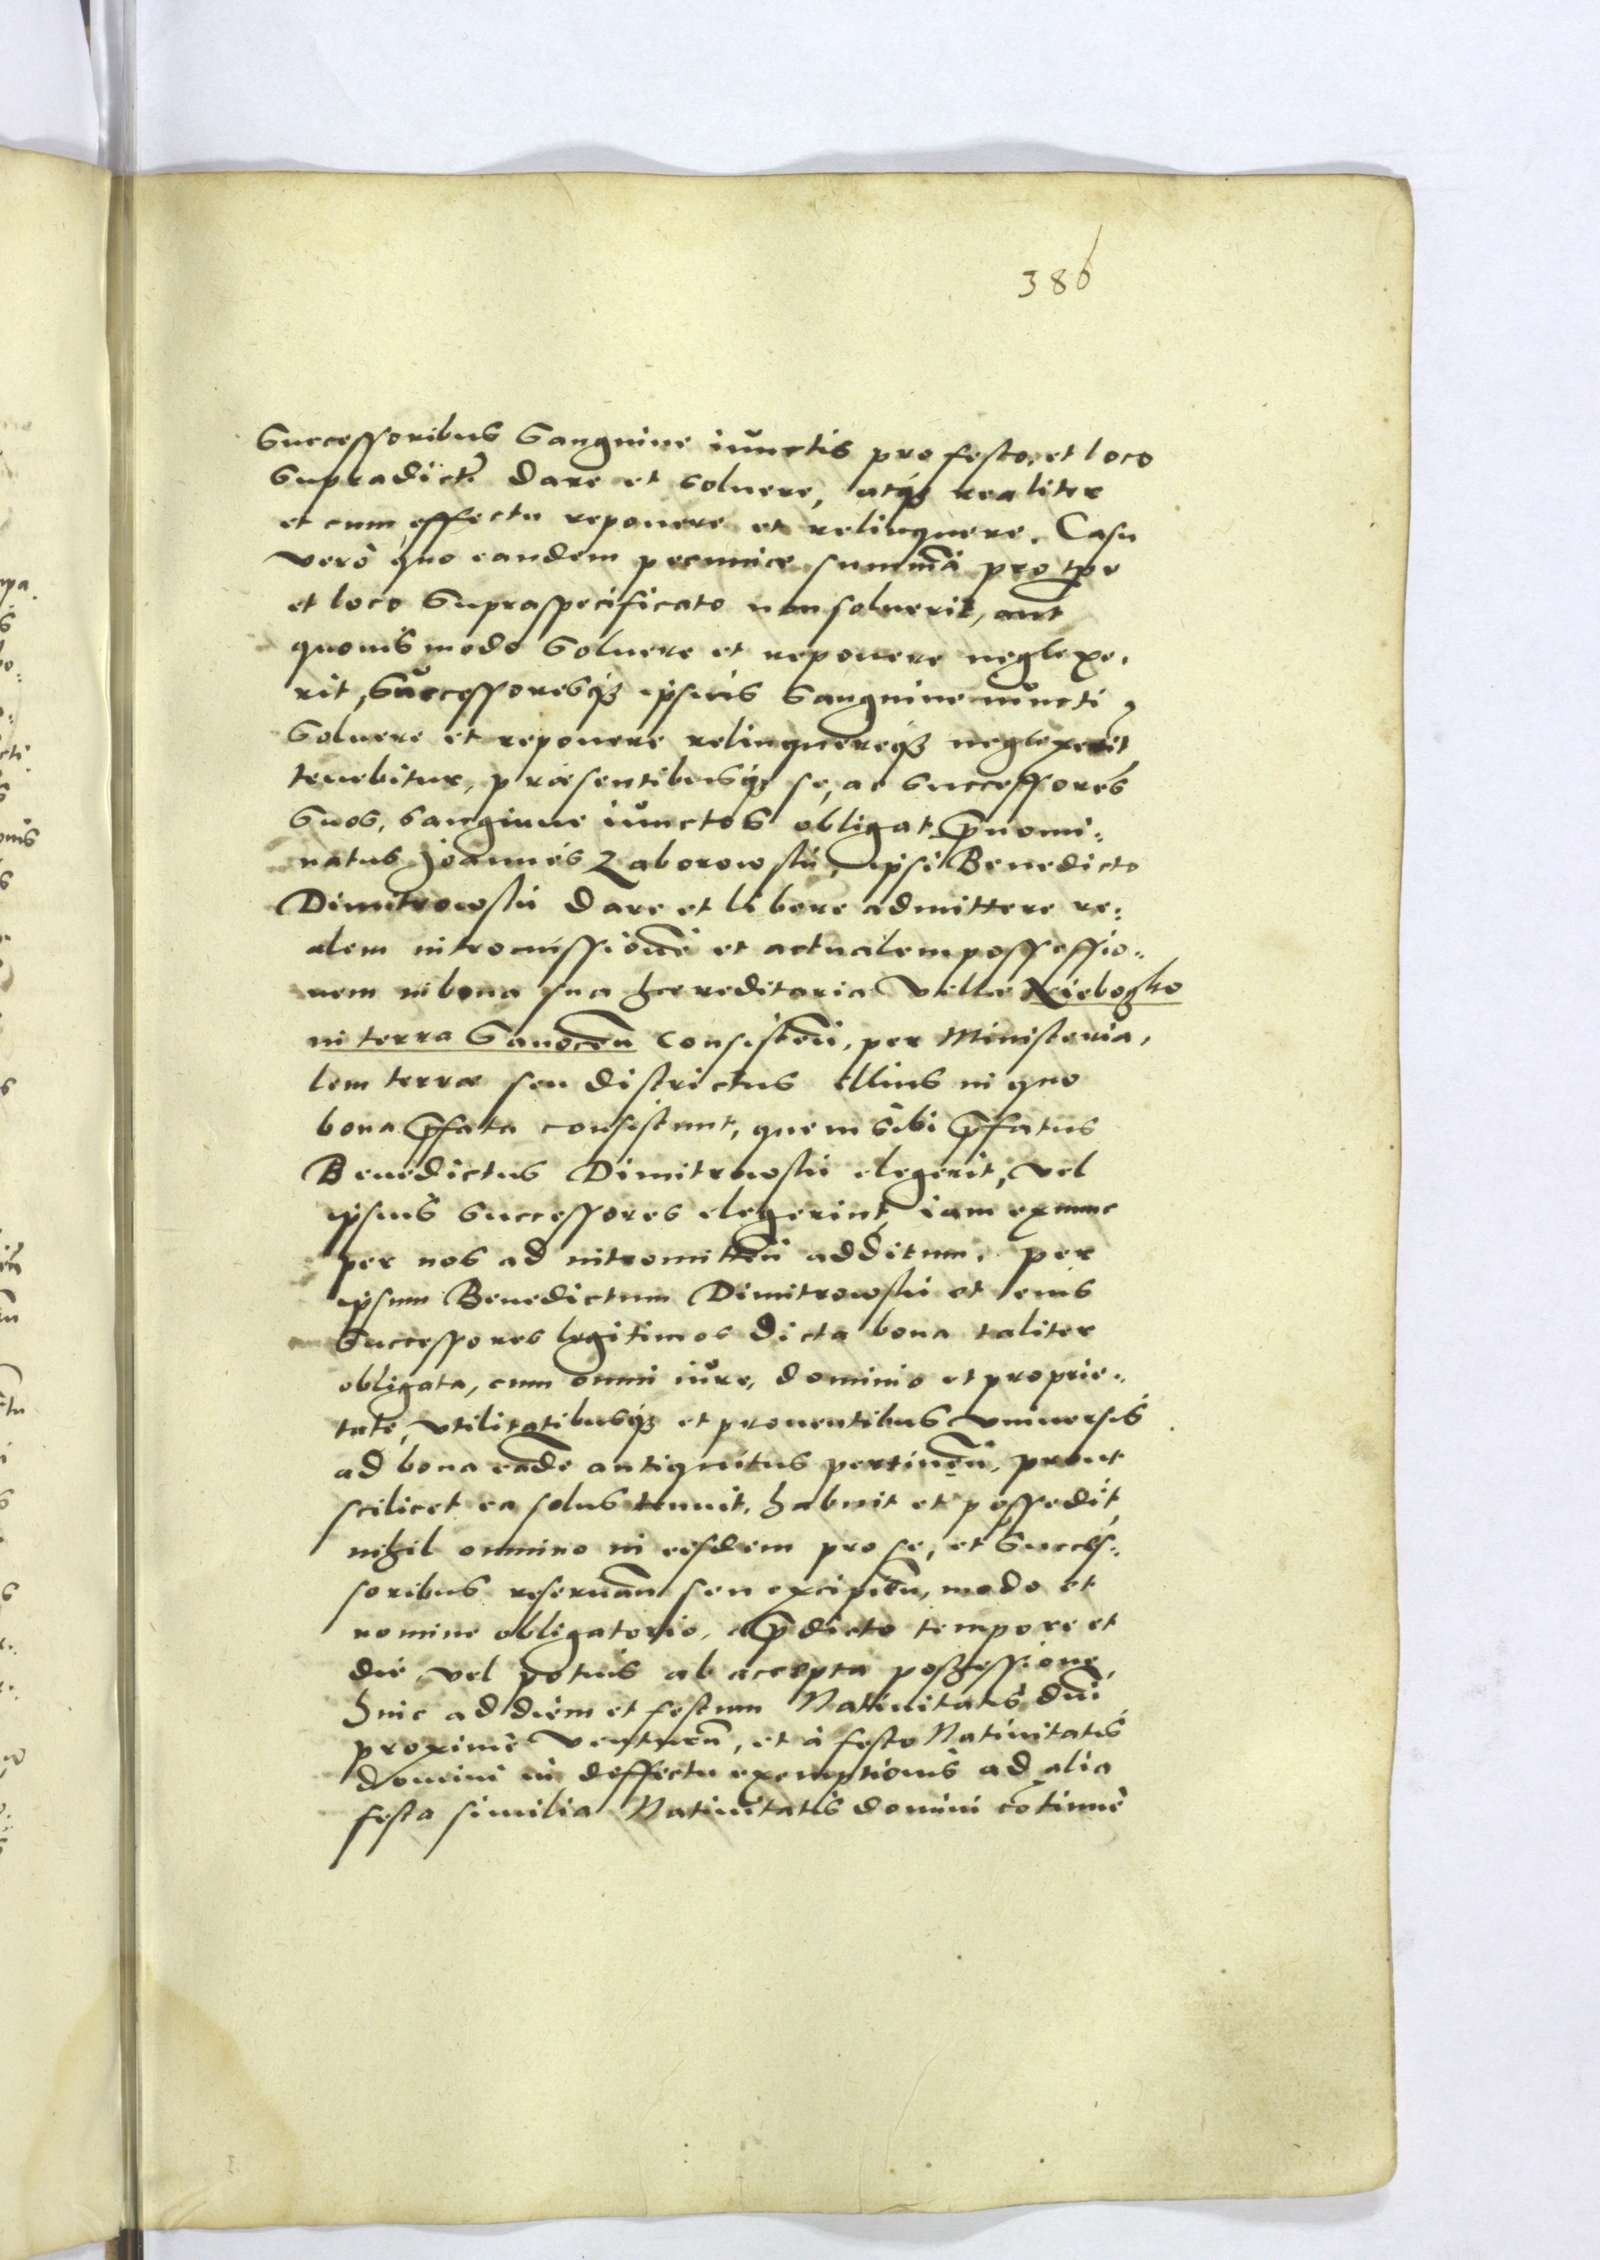 380
Successoribus Sanguine iunctis pro festo, et loco
Supradict dare et soluere, atq; realiter
et cum effectu reponere et relinquere. Casu
vero quo eandem pecuniæ summã pro tpe
et loco Supraspecificato non soluerit, aut
quouis modo Soluere et reponere neglexe,
rit, Successoresq; ipsius Sanguine iuncti,
Soluere et reponere relinquereq; neglexerit
tenebitur, præsentibusq; se, ac Successores
Suos, sanguine iunctos obligat. Pnomi:
natus Joannes Zaborowskii, ipsi Benedicto
Dimitrowskii dare et libere admittere re:
alem intromissionẽ et actualem possessio:
nem in bona sua hæreditaria villæ
in terra Sanocen̄ consisten̄, per Ministeria,
lem terræ seu districtus illius in quo
bona pfata consistunt, quem sibi pfatus
Benedictus Dimitrowskii elegerit, vel
ipsius Successores elegerint, iam exnunc
per nos ad intromitten̄ additum. per
ipsum Benedictum Dimitrowskii et eius
Successores legitimos dicta bona taliter
obligata, cum omni iure, dominio et proprie:
tate, vtilitatibusq; et prouentibus vniuersis
ad bona eadẽ antiquitus pertinen̄, prout
scilicet ea solus tenuit, habuit et possedit,
nihil omnino in eisdem pro se, et Succes:
soribus reseruan̄ seu excipien̄, modo et
nomine obligatorio, a pdicto tempore et
die vel potius ab accepta possessione,
hinc ad diem et festum Natiuitatis dni
proximè venturū, et à festo Natiuitatis
domini in deffectu exemptionis ad alia
festa similia Natiuitatis domini cõtinuè